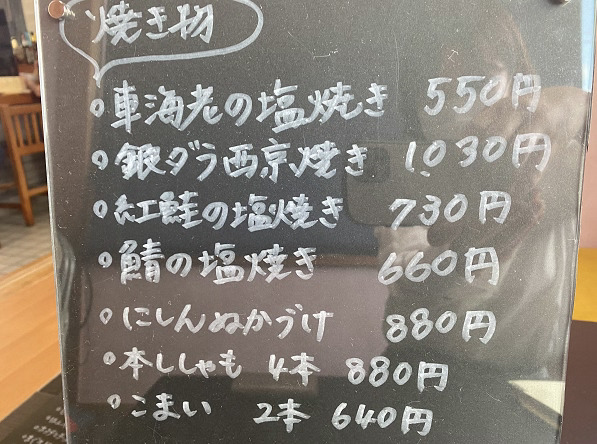 焼き物
車海老の塩焼き 550円
銀ダラ西京焼き 1,030円
紅鮭の塩焼き 730円
鯖の塩焼き 660円
にしんぬかづけ 880円
本ししゃも 4本 880円
こまい 2本 640円